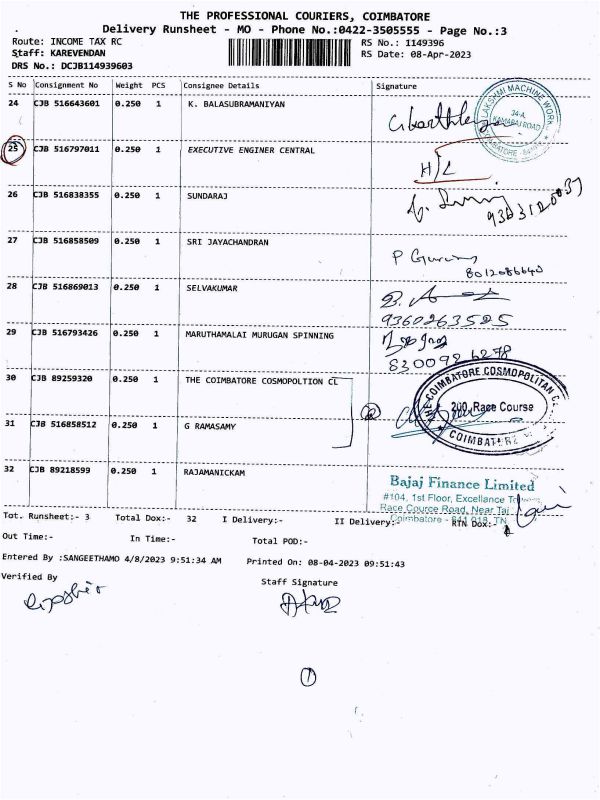 THE PROFESSIONAL COURIERS, COIMBATORE
Delivery Runsheet - MO - Phone No.:0422-3505555 - Page No.:3
Route: INCOME TAX RC RS No.: 1149396
Staff: KAREVENDAN RS Date: 08-Apr-2023
DRS No.: DCJB114939603
S No Consignment No Weight PCS Consignee Details Signature
24 CJB 516643601 0.250 1 K. BALASUBRAMANIYAN
LAKSHMI MACHINE WORK
34-A,
KAMARAJ ROAD
25 CJB 516797011 0.250 1 EXECUTIVE ENGINER CENTRAL
26 CJB 516838355 0.250 1 SUNDARAJ
27 CJB 516858509 0.250 1 SRI JAYACHANDRAN
8012086640
28 CJB 516869013 0.250 1 SELVAKUMAR
9360263505
29 CJB 516793426 0.250 1 MARUTHAMALAI MURUGAN SPINNING
8300926278
30 CJB 89259320 0.250 1 THE COIMBATORE COSMOPOLTION CL
THE COIMBATORE COSMOPOLITAN CL
200, Race Course
31 CJB 516858512 0.250 1 G RAMASAMY
32 CJB 89218599 0.250 1 RAJAMANICKAM
Bajaj Finance Limited
#104, 1st Floor, Excellance
Race Cource Road, Near Taj
Coimbatore - 641 018. TN
Tot. Runsheet:- 3 Total Dox:- 32 I Delivery:- II Delivery:- RTN Dox:-
Out Time:- In Time:- Total POD:-
Entered By :SANGEETHAMO 4/8/2023 9:51:34 AM Printed On: 08-04-2023 09:51:43
Verified By Staff Signature
1